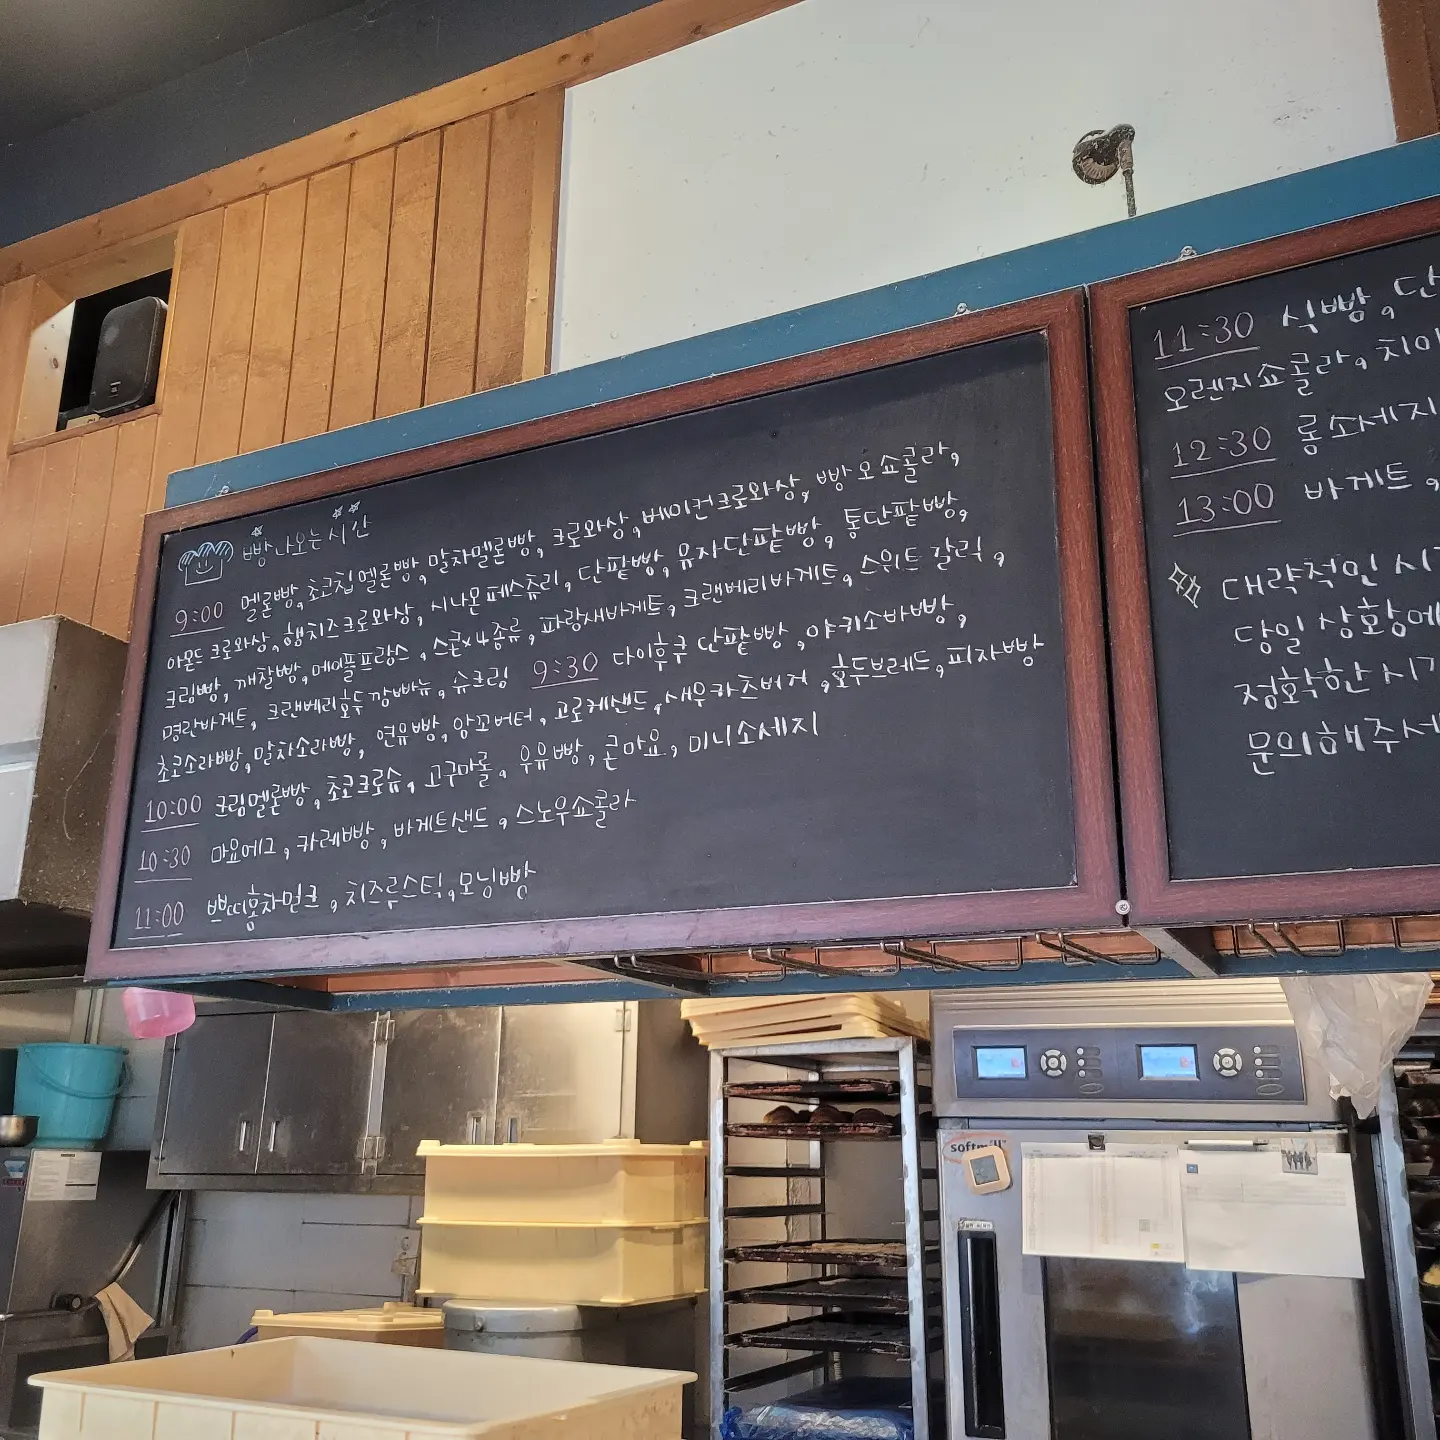 빵 나오는 시간
9:00 멜론빵, 초코칩멜론빵, 말차멜론빵, 크로와상, 베이컨크로와상, 빵오쇼콜라,
아몬드크로와상, 햄치즈크로와상, 시나몬페스츄리, 단팥빵, 유자단팥빵, 통단팥빵,
크림빵, 깨찰빵, 메이플프랑스, 스콘x4종류, 파랑새바게트, 크랜베리바게트, 스위트갈릭,
명란바게트, 크랜베리호두깜빠뉴, 슈크림 9:30 다이후쿠 단팥빵, 야키소바빵,
초코소라빵, 말차소라빵, 연유빵, 앙꼬버터, 고로케샌드, 새우카츠버거, 호두브레드, 피자빵
10:00 크림멜론빵, 초코크로슈, 고구마롤, 우유빵, 콘마요, 미니소세지
10:30 마요에그, 카레빵, 바게트샌드, 스노우쇼콜라
11:00 쁘띠홍차밀크, 치즈루스틱, 모닝빵
11:30 식빵, 단
오렌지쇼콜라, 치아
12:30 롱소세지
13:00 바게트,
대략적인 시
당일 상황에
정확한 시
문의해주세
softmill